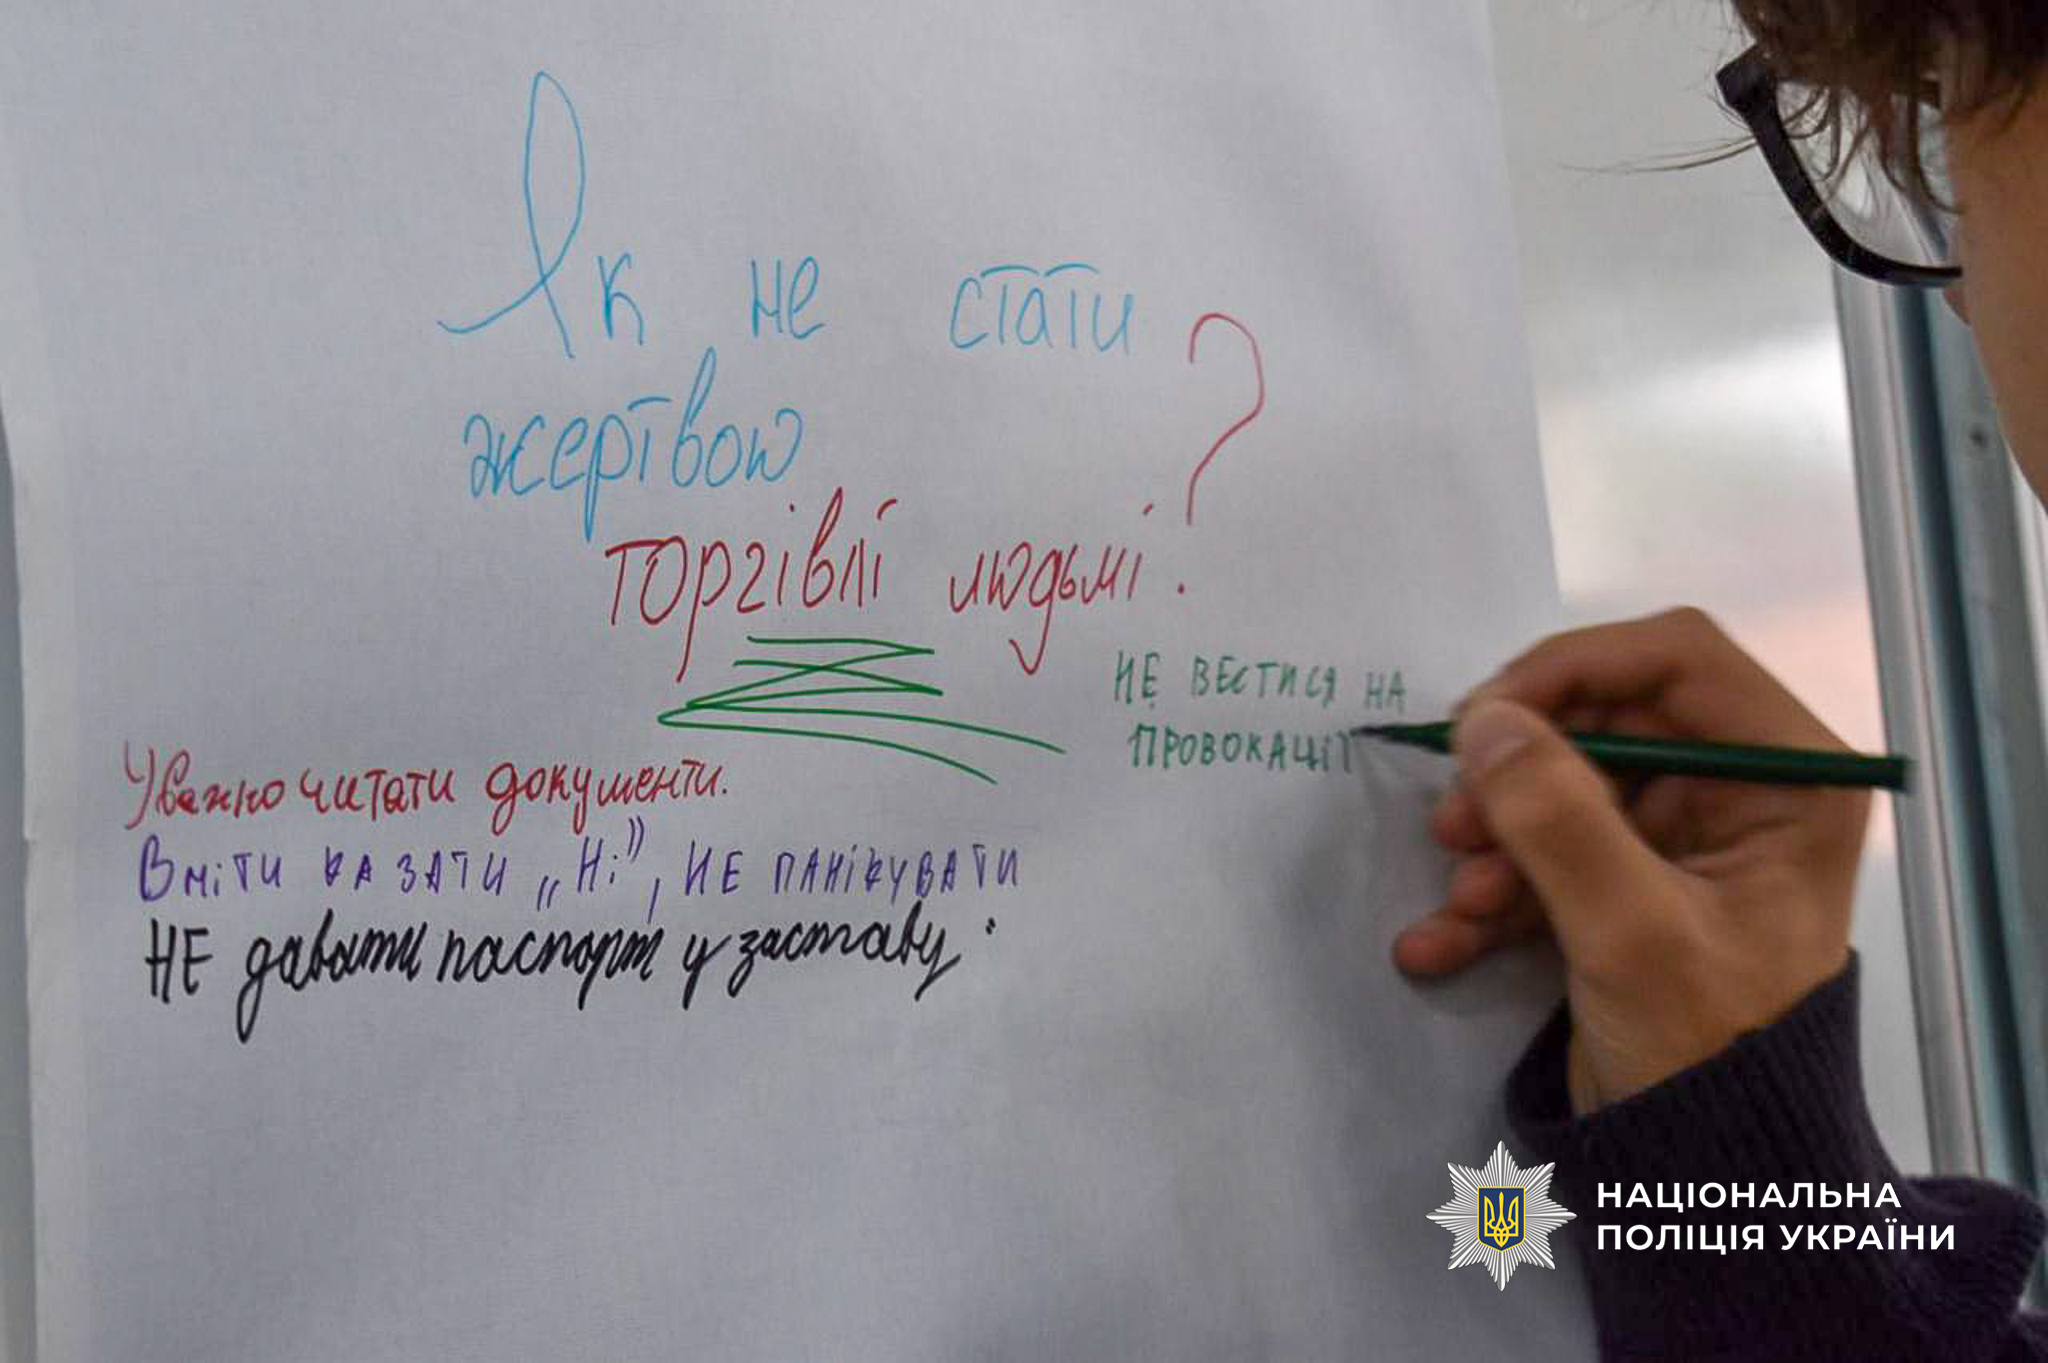 Як не стати
жертвою
торгівлі людьмі?
НЕ ВЕСТИСЯ НА
ПРОВОКАЦІЇ
Уважно читати документи.
Вміти казати „Ні”, не панікувати
НЕ давати паспорт у заставу.
НАЦІОНАЛЬНА
ПОЛІЦІЯ УКРАЇНИ